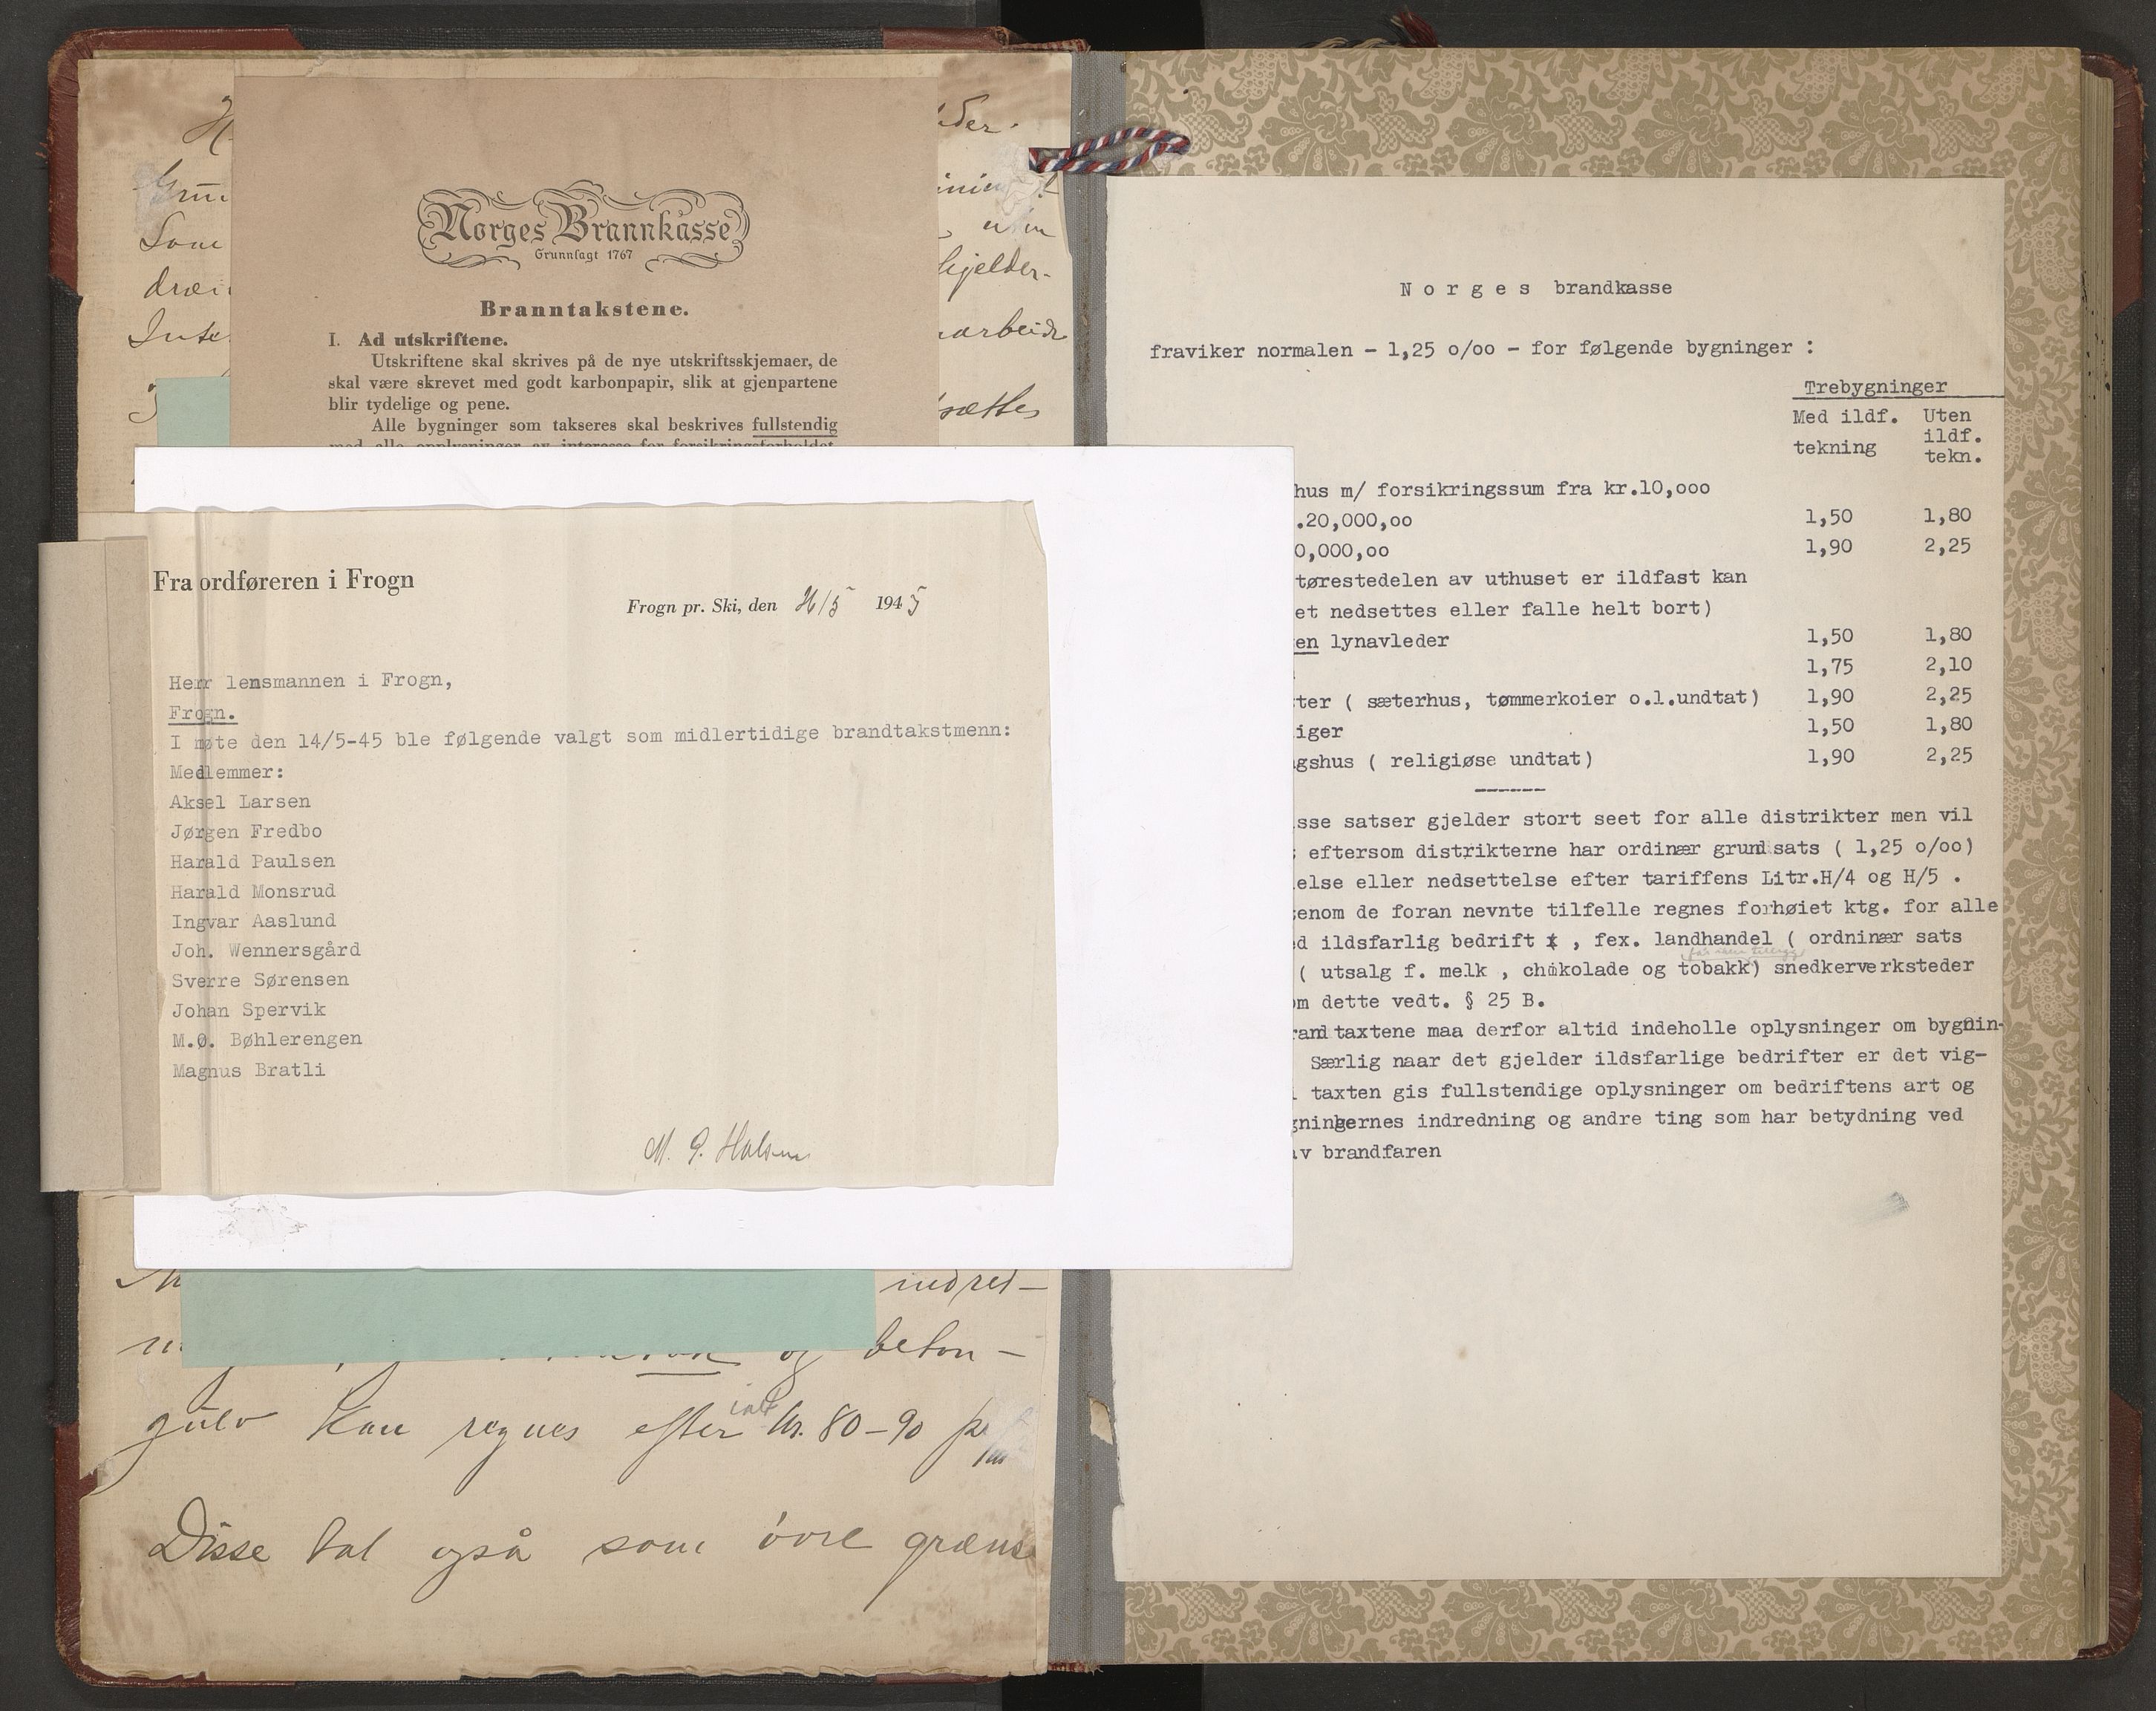 der.
Som
hjelder-
arbeide
sættes
Norges Brannkasse
Grunnlagt 1767
Branntakstene.
I. Ad utskriftene.
Utskriftene skal skrives på de nye utskriftsskjemaer, de
skal være skrevet med godt karbonpapir, slik at gjenpartene
blir tydelige og pene.
Alle bygninger som takseres skal beskrives fullstendig
med alle opplysninger av interesse for forsikringsforholdet.
Fra ordføreren i Frogn
Frogn pr. Ski, den 1945
Herr lensmannen i Frogn,
Frogn.
I møte den 14/5-45 ble følgende valgt som midlertidige brandtakstmenn:
Medlemmer:
Aksel Larsen
Jørgen Fredbo
Harald Paulsen
Harald Monsrud
Ingvar Aaslund
Joh. Wennersgård
Sverre Sørensen
Johan Spervik
M.Ø. Bøhlerengen
Magnus Bratli
indred-
og beton-
gulv kan regnes efter kr. 80-90 pr
Disse tal også som øvre grænse
Norges brandkasse
fraviker normalen - 1,25 o/oo - for følgende bygninger :
Trebygninger
Med ildf. Uten
ildf.
tekning
tekn.
hus m/ forsikringssum fra kr.10,ooo
.20,000,oo 1,50 1,80
0,000,oo 1,90 2,25
tørestedelen av uthuset er ildfast kan
et nedsettes eller falle helt bort)
en lynavleder 1,50 1,80
1,75 2,10
tter ( sæterhus, tømmerkoier o.l.undtat) 1,90 2,25
iger 1,50 1,80
gshus ( religiøse undtat) 1,90 2,25
-------
sse satser gjelder stort seet for alle distrikter men vil
eftersom distrikterne har ordinær grundsats ( 1,25 o/oo)
else eller nedsettelse efter tariffens Litr.H/4 og H/5 .
enom de foran nevnte tilfelle regnes forhøiet ktg. for alle
d ildsfarlig bedrift , fex. landhandel ( ordninær sats
( utsalg f. melk , chokolade og tobakk) snedkerverksteder
om dette vedt. § 25 B.
randtaxtene maa derfor altid indeholle oplysninger om bygnin-
Særlig naar det gjelder ildsfarlige bedrifter er det vig-
i taxten gis fullstendige oplysninger om bedriftens art og
gningernes indredning og andre ting som har betydning ved
av brandfaren